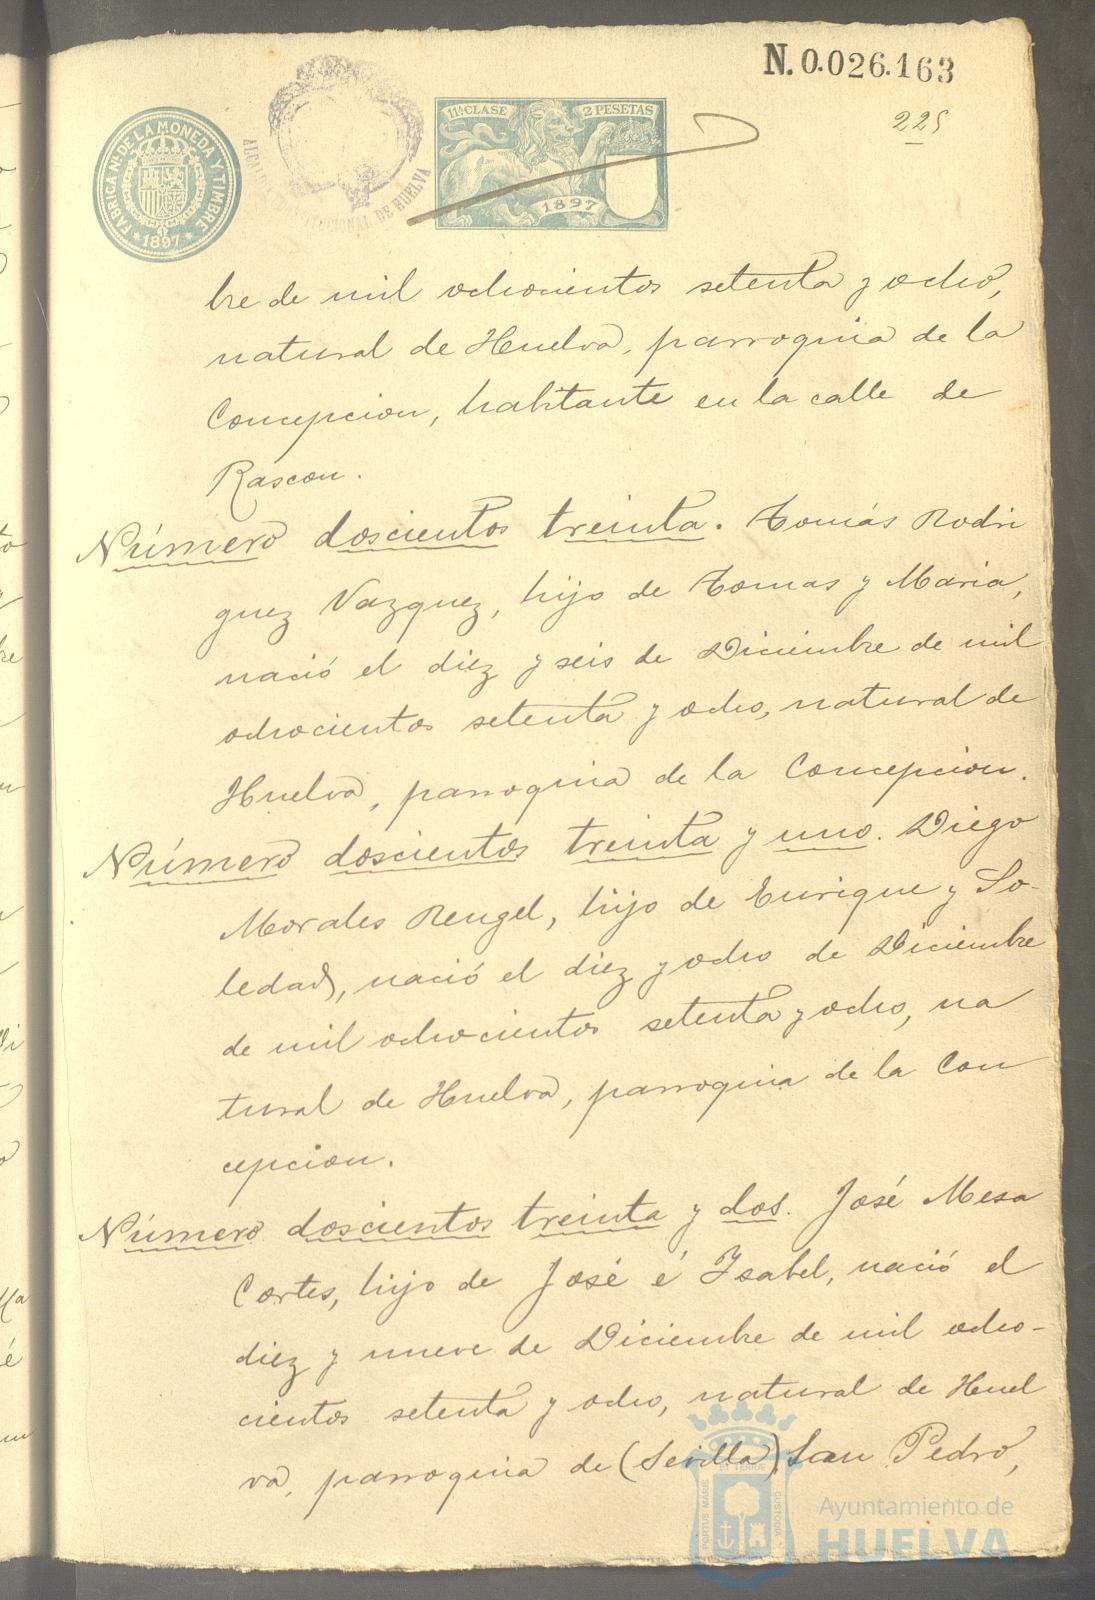 N. 0.026.163
225
FABRICA NL. DE LA MONEDA Y TIMBRE
* 1897 *
DE HUELVA
11ª CLASE 2 PESETAS
1897
bre de mil ochocientos setenta y ocho,
natural de Huelva, parroquia de la
Concepcion, habitante en la calle de
Rascon.
Número doscientos treinta. Tomás Rodri
guez Vazquez, hijo de Tomas y Maria,
nació el diez y seis de Diciembre de mil
ochocientos setenta y ocho, natural de
Huelva, parroquia de la Concepcion.
Número doscientos treinta y uno. Diego
Morales Rengel, hijo de Enrique y So-
ledad, nació el diez y ocho de Diciembre
de mil ochocientos setenta y ocho, na
tural de Huelva, parroquia de la Con
cepcion.
Número doscientos treinta y dos. José Mesa
Cortes, hijo de José é Ysabel, nació el
diez y nueve de Diciembre de mil ocho-
cientos setenta y ocho, natural de Huel
va, parroquia de (Sevilla) San Pedro,
PORTUS MARIS ET TERRÆ CUSTODIA
Ayuntamiento de
HUELVA